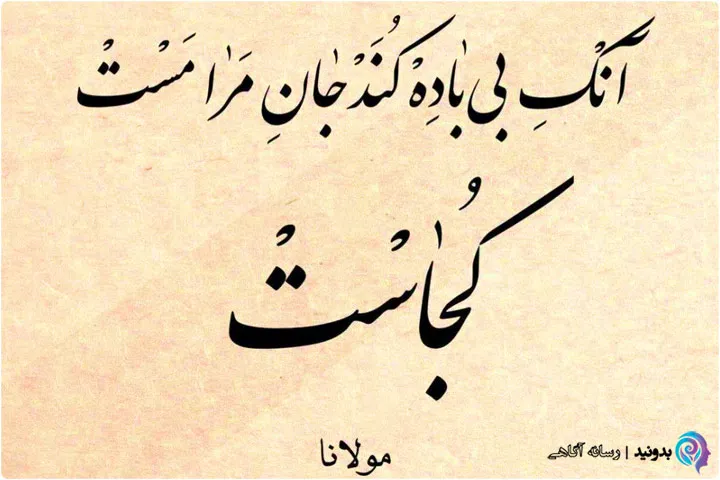 آنْکِ بی بادِهْ کُنَدْ جانِ مَرا مَسْتْ
کُجاسْتْ
مولانا
بدونید | رسانه آگاهی